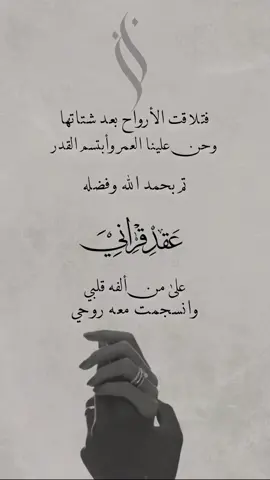 فتلاقت الأرواح بعد شتاتها
وحن علينا العمر وأبتسم القدر
تم بحمد الله وفضله
عَقدِ قِرَاني
على من ألفه قلبي
وانسجمت معه روحي